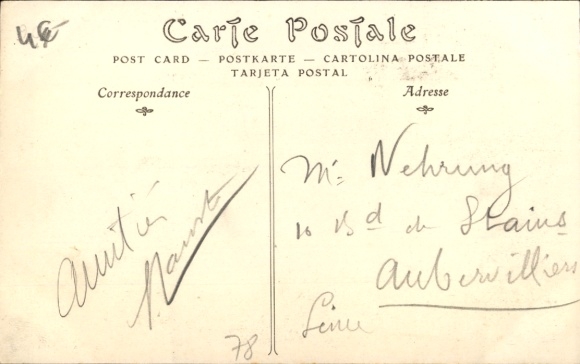 4€
Carte Postale
POST CARD — POSTKARTE — CARTOLINA POSTALE
TARJETA POSTAL
Correspondance
Adresse
Amitié
Mr Nehrung
10 Bd de Stains
Aubervilliers
Seine
78